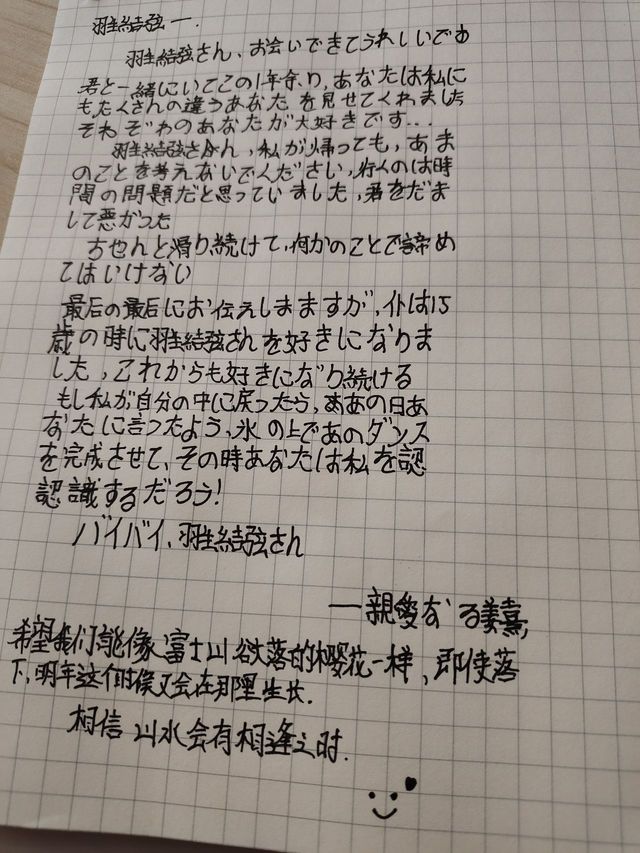 羽生結弦一.
羽生結弦さん、お会いできてうれしいです
君と一緒にいてこの1年余り,あなたは私に
もたくさんの違うあなたを見せてくれました
それぞれのあなたが大好きです...
羽生結弦さん,私が帰っても,あま
のことを考えないでください,行くのは時
間の問題だと思っていました,君をだま
して悪かった
ちゃんと滑り続けて,何かのことで諦め
てはいけない
最后の最后にお伝えしますが,仆は15
歳の時に羽生結弦さんを好きになりま
した,これからも好きになり続ける
もし私が自分の中に戻ったら,あの日あ
なたに言ったよう,氷の上であのダンス
を完成させて,その時あなたは私を認
認識するだろう!
バイバイ、羽生結弦さん
——親愛なる美熹
希望我们能像富士山欲落的樱花一样、即使落
下,明年这个时候又会在那里生长.
相信山水会有相逢之时.